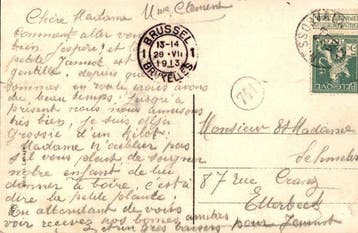 Mme Clement
Chère Madame
Comment allez vous
bien j'espère! et
petite Jannot et
gentille, depuis que
sommes en route nous avons
du beau temps. Jusqu'à
présent nous nous amusons
très bien, je suis déjà
Grossie d'un kilo!
Madame n'oubliez pas
s'il vous plait de soigner
notre enfant de lui
donner à boire, c'est à
dire la petite plante!
En attendant de vous
voir recevez nos bonnes amitiés
et un gros baisers pour Jannot
BRUSSEL
1 13-14 1
29 VII
1913
BRUXELLES
Monsieur et Madame
87 rue
Etterbeek